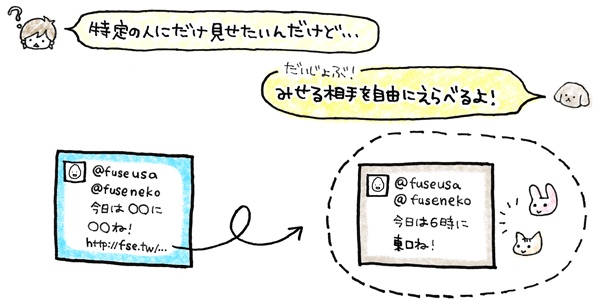 ?
特定の人にだけ見せたいんだけど…
だいじょぶ!
みせる相手を自由にえらべるよ!
@fuseusa
@fuseneko
今日は○○に
○○ね!
http://fse.tw/...
@fuseusa
@fuseneko
今日は6時に
東口ね!